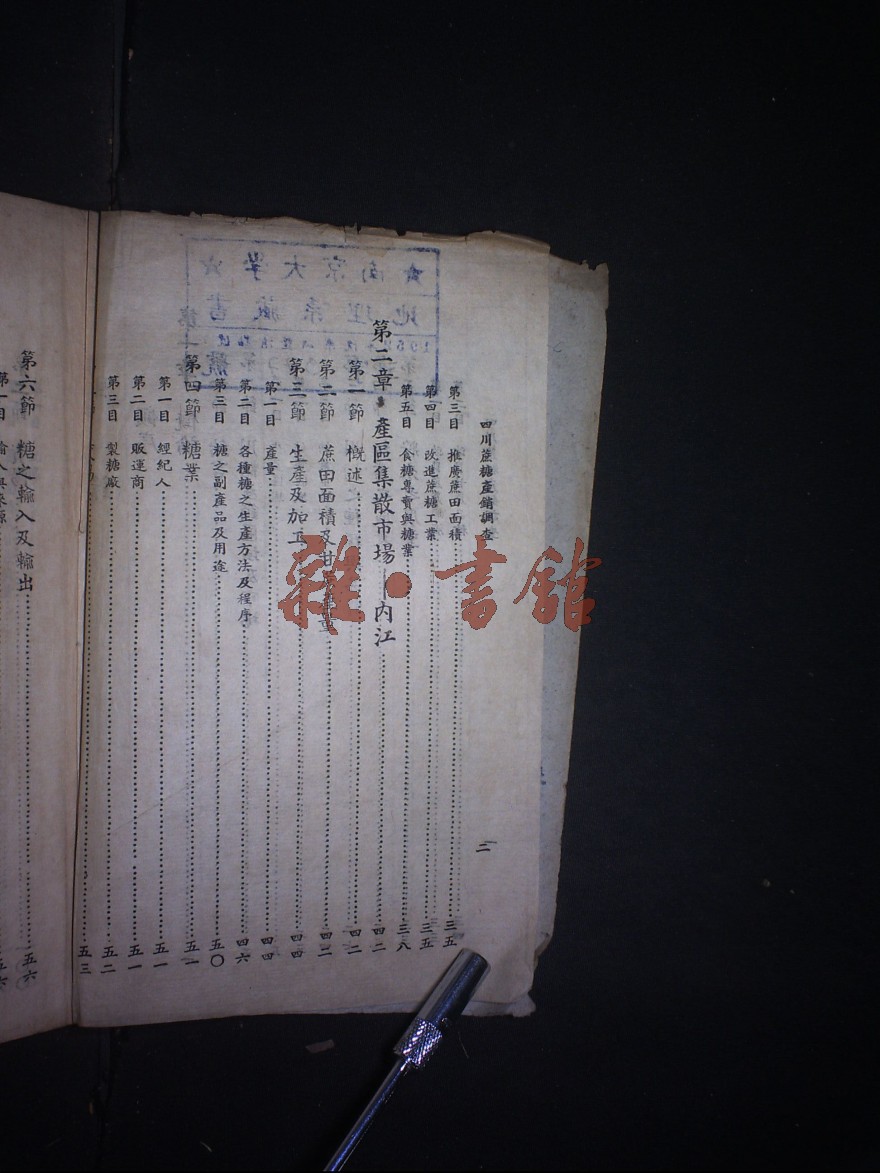 四川蔗糖產銷調查
二
第三目 推廣蔗田面積 三五
第四目 改進蔗糖工業 三五
第五目 食糖專賣與糖業 三八
第二章 產區集散市場——內江 四二
第一節 概述 四二
第二節 蔗田面積及甘蔗產量 四二
第三節 生產及加工 四四
第一目 產量 四四
第二目 各種糖之生產方法及程序 四六
第三目 糖之副產品及用途 五〇
第四節 糖業 五一
第一目 經紀人 五一
第二目 販運商 五一
第三目 製糖廠 五二
五三
第六節 糖之輸入及輸出 五六
第一目 五六
南京大學
地理系藏書
雜·書館